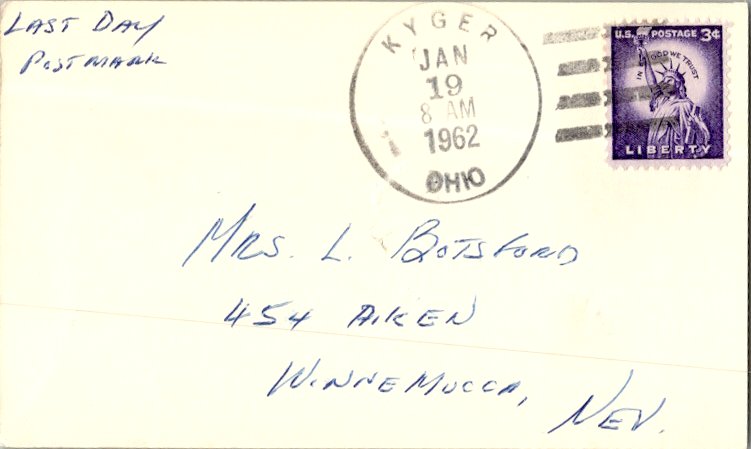 LAST DAY
POSTMARK
KYGER
JAN
19
8 AM
1962
OHIO
U.S. POSTAGE 3¢
IN GOD WE TRUST
LIBERTY
MRS. L. BOTSFORD
454 AIKEN
WINNEMUCCA,
NEV.